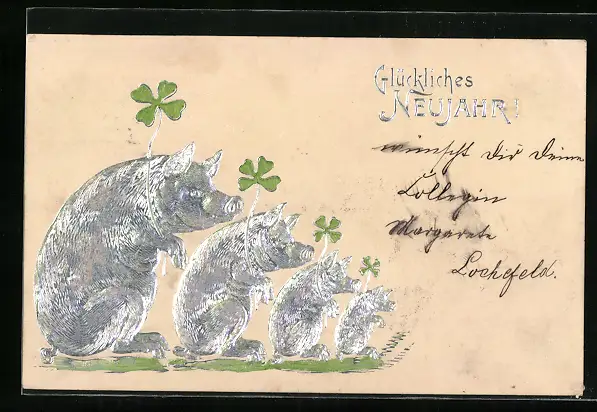 Glückliches
NEUJAHR!
wünscht Dir Deine
Collegin
Margarete
Lochefeld.